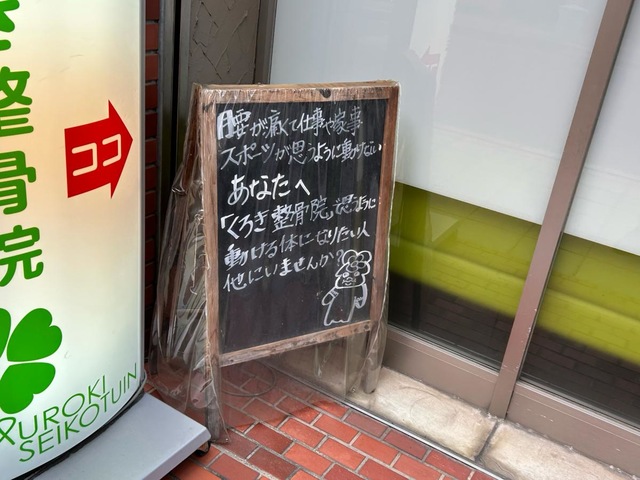 整骨院
ココ
KUROKI
SEIKOTUIN
腰が痛くて仕事や家事
スポーツが思うように動けない
あなたへ
「くろき整骨院」で思うように
動ける体になりたい人
他にいませんか?